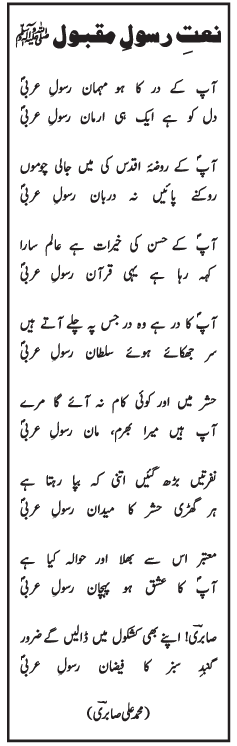 نعتِ رسولِ مقبول ﷺ
آپؐ کے در کا ہو مہمان رسولِ عربیؐ
دل کو ہے ایک ہی ارمان رسولِ عربیؐ
آپؐ کے روضۂ اقدس کی میں جالی چوموں
روکنے پائیں نہ دربان رسولِ عربیؐ
آپؐ کے حسن کی خیرات ہے عالم سارا
کہہ رہا ہے یہی قرآن رسولِ عربیؐ
آپؐ کا در ہے وہ در جس پہ چلے آتے ہیں
سر جھکائے ہوئے سلطان رسولِ عربیؐ
حشر میں اور کوئی کام نہ آئے گا مرے
آپ ہیں میرا بھرم، مان رسولِ عربیؐ
نفرتیں بڑھ گئیں اتنی کہ بپا رہتا ہے
ہر گھڑی حشر کا میدان رسولِ عربیؐ
معتبر اس سے بھلا اور حوالہ کیا ہے
آپؐ کا عشق ہو پہچان رسولِ عربیؐ
صابریؔ! اپنے بھی کشکول میں ڈالیں گے ضرور
گنبدِ سبز کا فیضان رسولِ عربیؐ
(محمد علی صابریؔ)